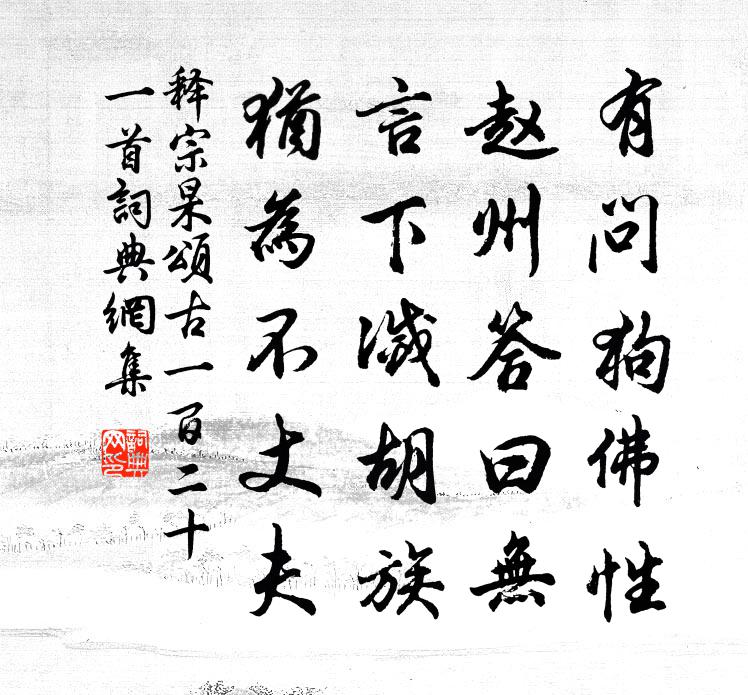 有问狗佛性
赵州答曰無
言下滅胡族
猶為不丈夫
释宗杲頌古一百二十
一首詞典網集
詞典网印